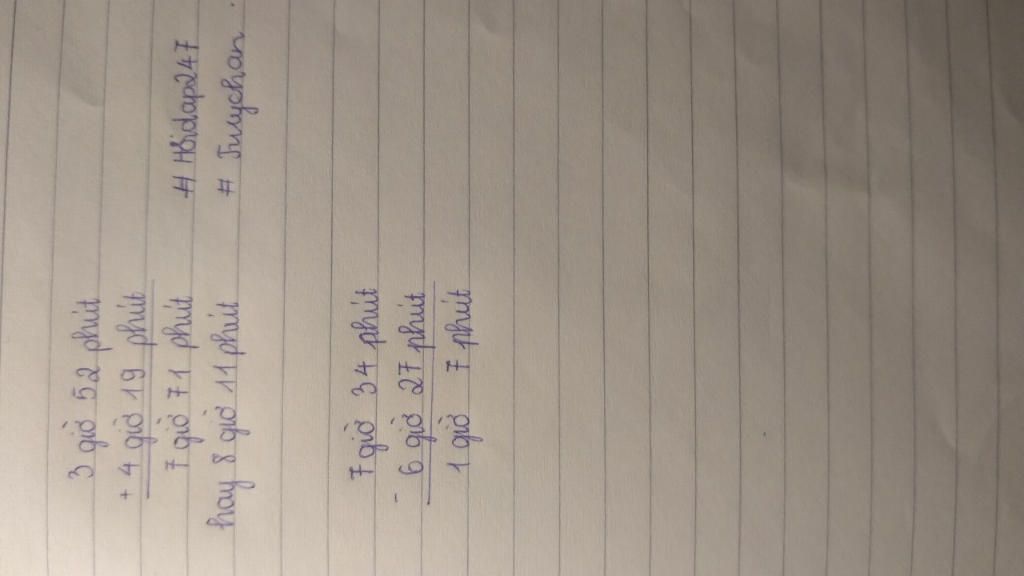 3 giờ 52 phút
+ 4 giờ 19 phút
7 giờ 71 phút
hay 8 giờ 11 phút
# Hoidap247
# Tmychan
7 giờ 34 phút
- 6 giờ 27 phút
1 giờ 7 phút